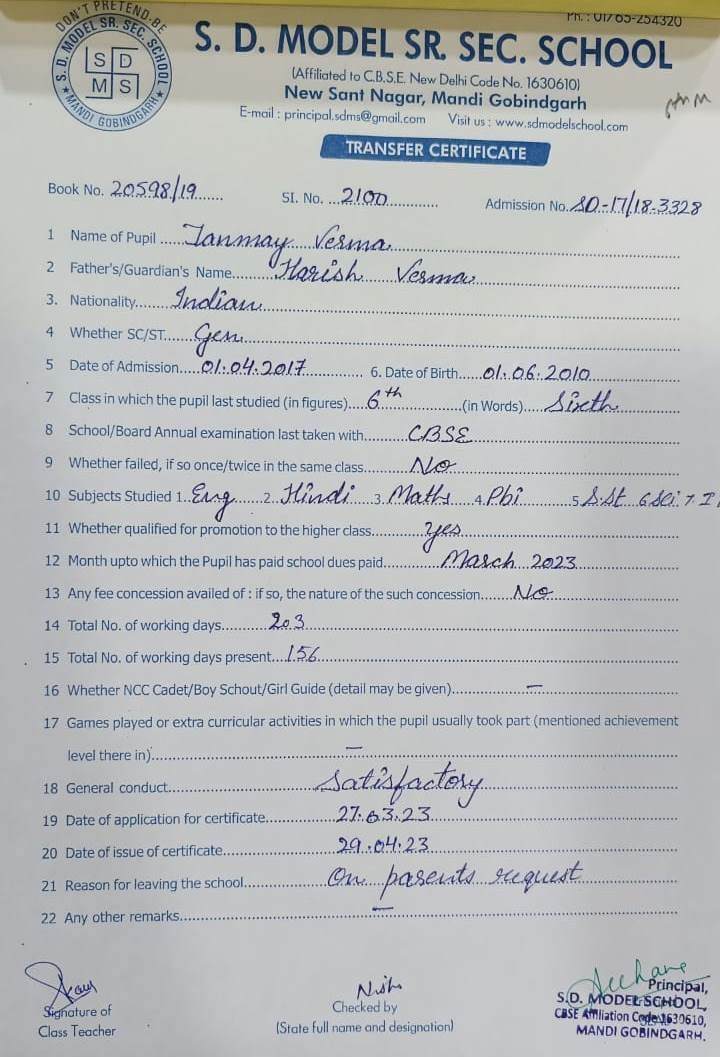 Ph.: 01765-254320
DON'T PRETEND-BE
S. D. MODEL SR. SEC. SCHOOL
S D
M S
★ MANDI GOBINDGARH ★
S. D. MODEL SR. SEC. SCHOOL
(Affiliated to C.B.S.E. New Delhi Code No. 1630610)
New Sant Nagar, Mandi Gobindgarh
E-mail : principal.sdms@gmail.com Visit us : www.sdmodelschool.com
TRANSFER CERTIFICATE
Book No. 20598/19 SI. No. 2100 Admission No. SD-17/18-3328
1 Name of Pupil Tanmay Verma
2 Father's/Guardian's Name Harish Verma
3. Nationality Indian
4 Whether SC/ST Gen
5 Date of Admission 01.04.2017 6. Date of Birth 01.06.2010
7 Class in which the pupil last studied (in figures) 6th (in Words) Sixth
8 School/Board Annual examination last taken with CBSE
9 Whether failed, if so once/twice in the same class No
10 Subjects Studied 1. Eng 2. Hindi 3. Maths 4. Pbi 5 S.St 6 Sci 7. I
11 Whether qualified for promotion to the higher class yes
12 Month upto which the Pupil has paid school dues paid March 2023
13 Any fee concession availed of : if so, the nature of the such concession No
14 Total No. of working days 203
15 Total No. of working days present 156
16 Whether NCC Cadet/Boy Schout/Girl Guide (detail may be given) —
17 Games played or extra curricular activities in which the pupil usually took part (mentioned achievement
level there in) —
18 General conduct Satisfactory
19 Date of application for certificate 27.03.23
20 Date of issue of certificate 29.04.23
21 Reason for leaving the school On parents request
22 Any other remarks —
Nish
Signature of
Class Teacher
Checked by
(State full name and designation)
Principal,
S.D. MODEL SCHOOL,
CBSE Affiliation Code 1630610,
MANDI GOBINDGARH.